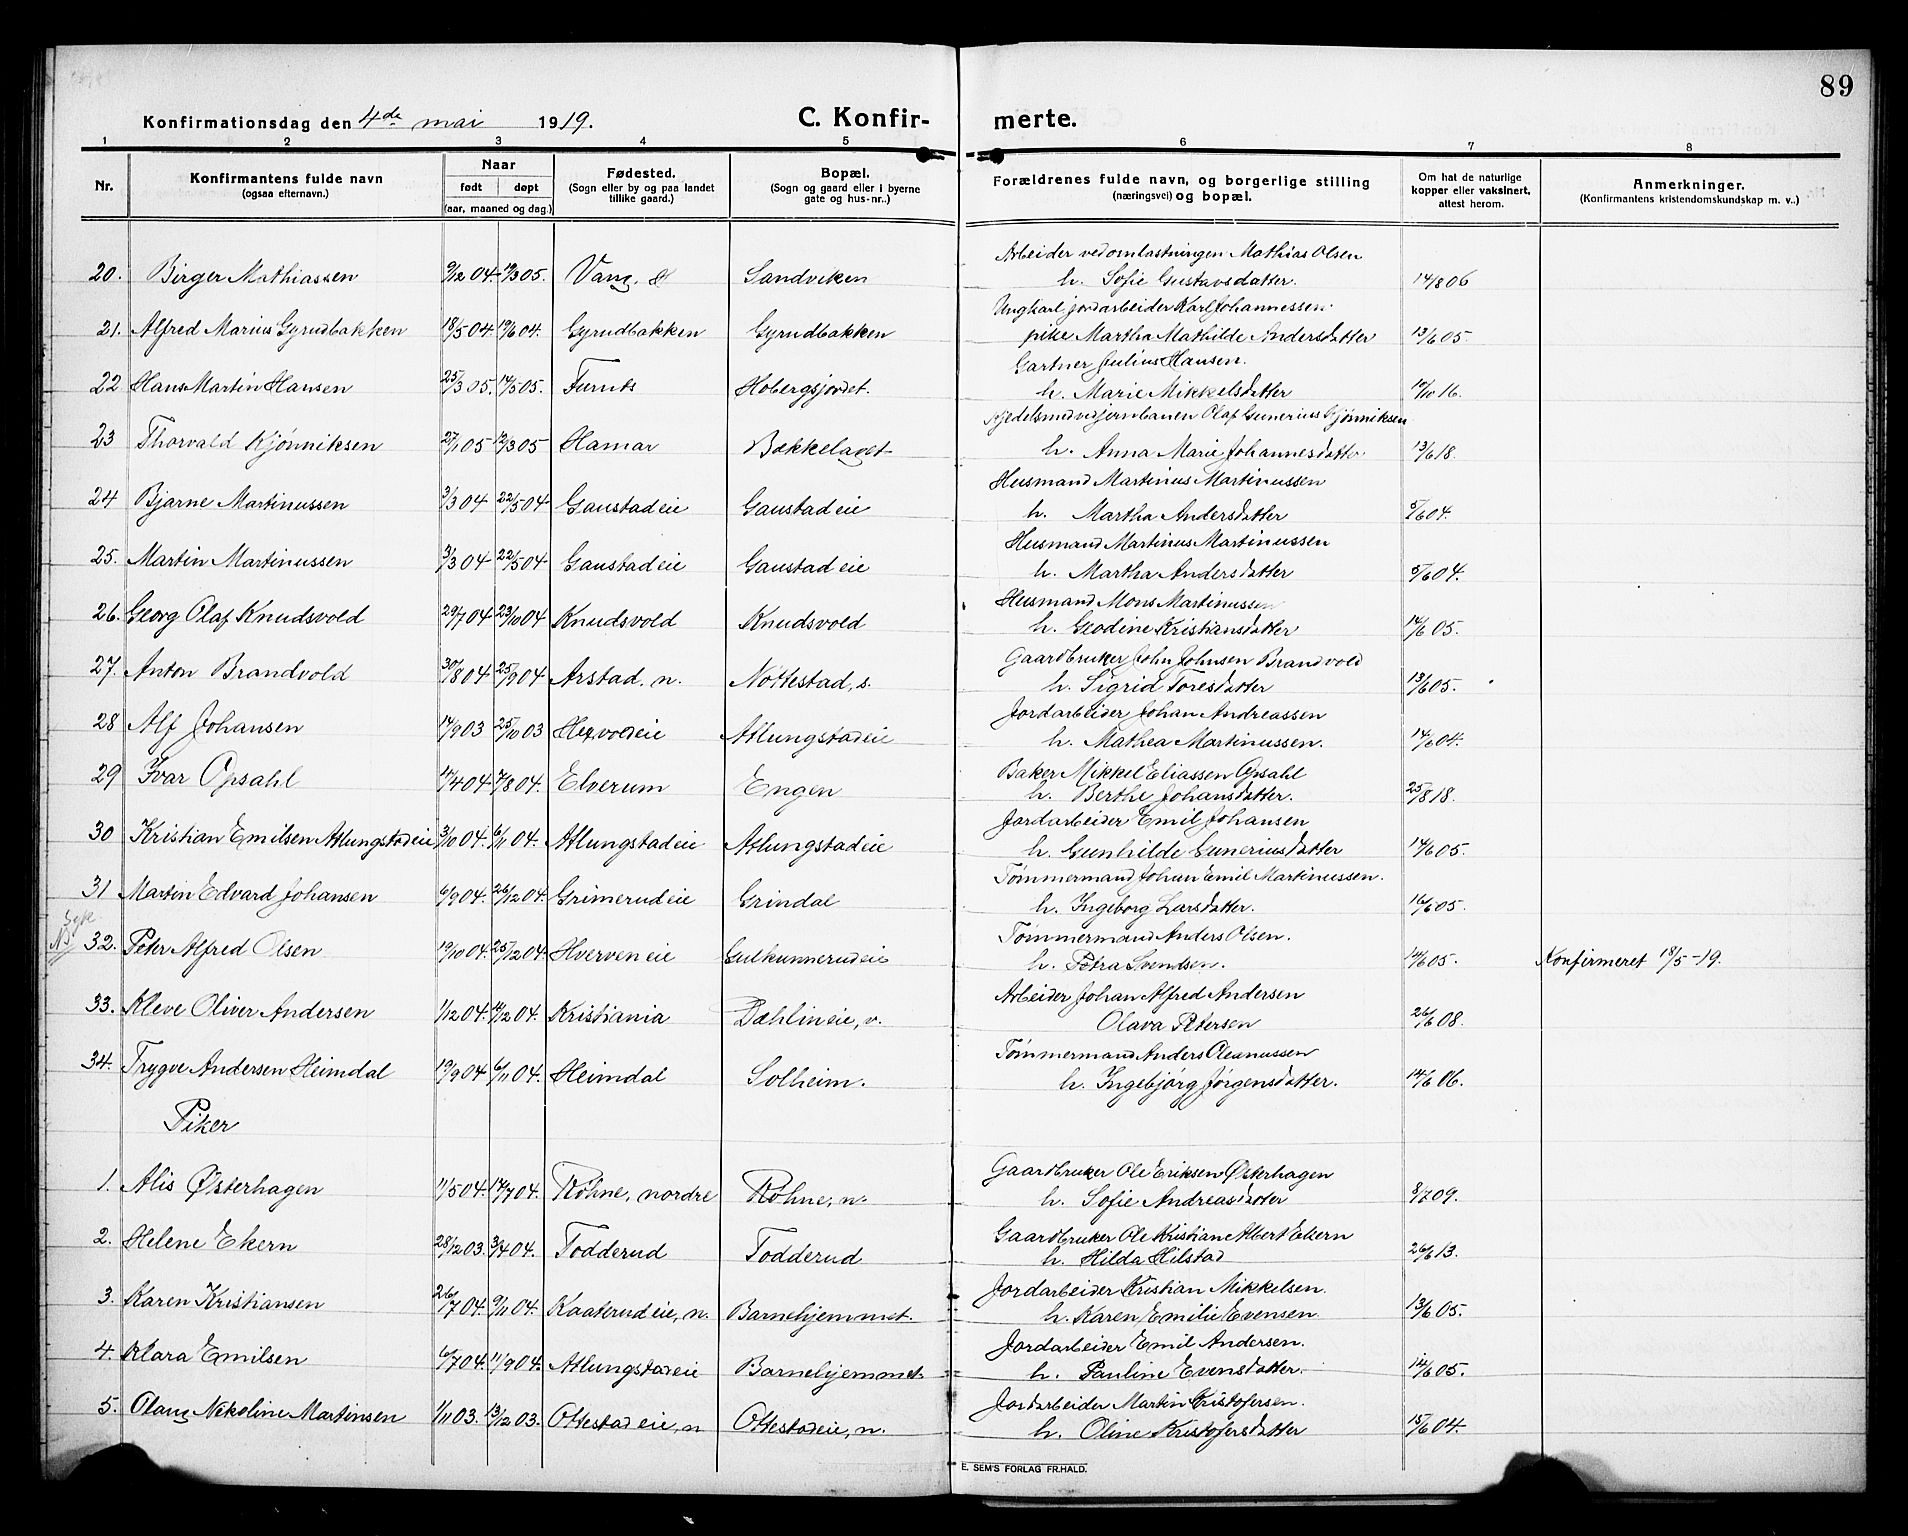 89
Konfirmationsdag den 4de mai 1919. C. Konfirmerte.
1 2 3 4 5 6 7 8
Nr. Konfirmantens fulde navn (ogsaa efternavn.) Naar født døpt (aar, maaned og dag.) Fødested. (Sogn eller by og paa landet tillike gaard.) Bopæl. (Sogn og gaard eller i byerne gate og hus-nr.) Forældrenes fulde navn, og borgerlige stilling (næringsvei) og bopæl. Om hat de naturlige kopper eller vaksinert, attest herom. Anmerkninger. (Konfirmantens kristendomskundskap m. v.)
Arbeider ved omlastningen Mathias Olsen
20. Birger Mathiassen 9/12 04. 19/3 05. Vang. Sandviken h. Sofie Gustavsdatter. 14/8 06
Ungkarl jordarbeider Karl Johannessen.
21. Alfred Marius Gyrudbakken 18/5 04. 19/6 04. Gyrudbakken Gyrudbakken pike Martha Mathilde Andersdatter 13/6 05.
Gartner Julius Hansen.
22 Hans Martin Hansen 25/3 05. 14/5 05. Furnes Hobergsjordet. h. Marie Mikkelsdatter 10/10 16.
Kjedelsmed v. jernbanen Olaf Gunerius Kjønniksen
23 Thorvald Kjønniksen 27/1 05 12/3 05 Hamar Bækkelaget h. Anna Marie Johannesdatter 13/6 18.
Husmand Martinus Martinussen
24 Bjarne Martinussen 3/3 04 22/5 04 Gaustadeie Gaustadeie h. Martha Andersdatter 5/6 04.
Husmand Martinus Martinussen
25. Martin Martinussen 3/3 04 22/5 04 Gaustadeie Gaustadeie h. Martha Andersdatter 5/6 04.
Husmand Mons Martinussen
26. Georg Olaf Knudsvold 29/7 04 23/10 04 Knudsvold Knudsvold h. Geodine Kristiansdatter 14/6 05.
Gaardbruker John Johnsen Brandvold
27. Anton Brandvold 30/8 04 25/9 04 Arstad. n. Nøttestad, s. h. Sigrid Toresdatter 13/6 05.
Jordarbeider Johan Andreassen
28 Alf Johansen 14/9 03 25/10 03 Hexvoldeie Atlungstadeie h. Mathea Martinussen. 14/6 04.
Baker Mikkel Eliassen Opsahl
29 Ivar Opsahl 17/4 04 7/8 04. Elverum Engen h. Berthe Johansdatter. 25/8 18.
Jordarbeider Emil Johansen
30 Kristian Emilsen Atlungstadeie 3/10 04. 6/11 04. Atlungstadeie Atlungstadeie h. Gunhilde Guneriusdatter 14/6 05.
Tømmermand Johan Emil Martinussen.
31 Martin Edvard Johansen 6/9 04. 26/12 04 Grimerudeie Grindal h. Ingeborg Larsdatter. 16/6 05.
Tømmermand Anders Olsen.
32. Peter Alfred Olsen 19/10 04. 25/12 04 Hverveneie Gulkunnerudeie h. Petra Svendsen. 14/6 05. Konfirmeret 18/5-19.
Arbeider Johan Alfred Andersen
33. Kleve Oliver Andersen 1/12 04. 11/12 04. Kristiania Dæhlineie, v. Olava Petersen 26/6 08.
Tømmermand Anders Oleanussen
34. Trygve Andersen Heimdal 19/9 04 6/11 04. Heimdal Solheim. h. Ingebjørg Jørgensdatter. 14/6 06.
Piker
Gaardbruker Ole Eriksen Østerhagen
1. Alis Østerhagen 11/5 04. 17/7 04. Røhne, nordre Røhne, n. h. Sofie Andreasdatter 8/7 09.
Gaardbruker Ole Kristian Albert Ekern
2. Helene Ekern 28/12 03. 3/4 04. Todderud Todderud h. Hilda Hilstad 26/6 13.
Jordarbeider Kristian Mikkelsen.
3. Karen Kristiansen 26/7 04. 9/11 04. Kaaterudeie, n. Barnehjemmet. h. Karen Emilie Evensen 13/6 05.
Jordarbeider Emil Andersen.
4. Klara Emilsen 6/7 04. 11/9 04. Atlungstadeie Barnehjemmet h. Pauline Evensdatter. 14/6 05.
Jordarbeider Martin Kristofersen.
5. Olaug Nikoline Martinsen 1/11 03. 13/12 03. Ottestadeie, n Ottestadeie, n. h. Oline Kristofersdatter 15/6 04.
E. SEM'S FORLAG FR.HALD.